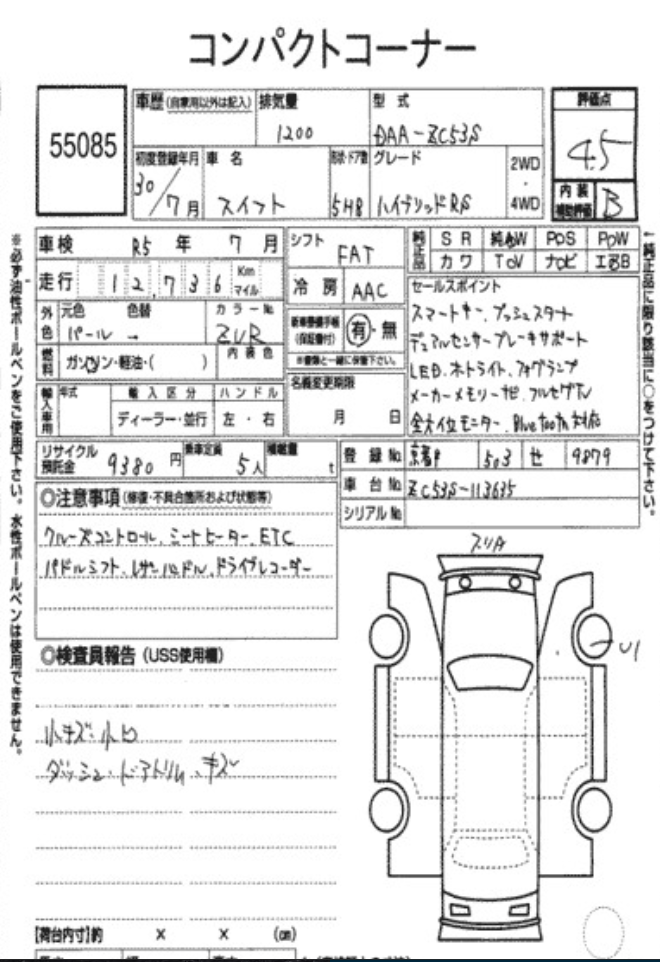 コンパクトコーナー
55085
車歴(自家用以外は記入) 排気量 型式 評価点
1200 DAA-ZC53S 4.5
初度登録年月 車名 形状・ドア数 グレード 2WD・4WD 内装補助評価 B
30/7月 スイフト 5HB ハイブリッドRS
車検 R5年 7月 シフト FAT 純正品 SR 純AW PS PW
走行 12,736 Km マイル 冷房 AAC カワ TV ナビ エアB
外色 元色 色替 カラーNo. セールスポイント
パール → ZVR 内装色 新車整備手帳(保証書付) 有・無 スマートキー、プッシュスタート
燃料 ガソリン・軽油・( ) ※書類と一緒に保管下さい。 デュアルセンサーブレーキサポート
輸入車用 年式 輸入区分 ハンドル 名義変更期限 LED、ホトライト、フォグランプ
ディーラー・並行 左・右 月 日 メーカーメモリーナビ、フルセグTV
全方位モニター、Bluetooth対応
リサイクル預託金 9380円 乗車定員 5人 積載量 t 登録No. 京都 503 せ 9879
車台No. ZC53S-113635
シリアルNo.
◎注意事項(修復・不具合箇所および状態等)
クルーズコントロール、シートヒーター、ETC
パドルシフト、レザーハンドル、ドライブレコーダー
スリA
U1
◎検査員報告(USS使用欄)
小キズ・小凹
ダッシュ・ドアトリム、キズ
【荷台内寸】約 × × (㎝)
※必ず油性ボールペンをご使用下さい。水性ボールペンは使用できません。
←純正品に限り該当に○をつけて下さい。